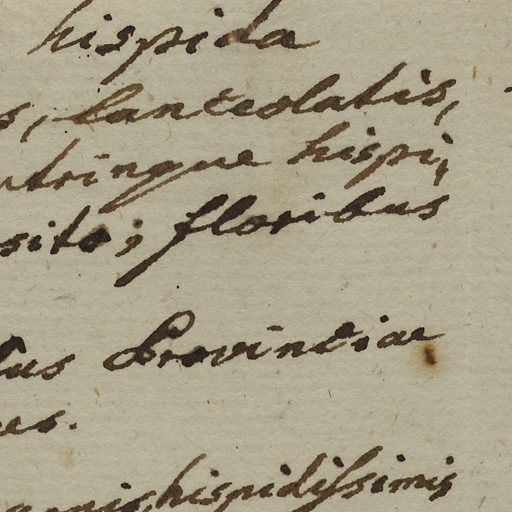 hispida
s, lanceolatis,
utrinque hispi„
sito; floribus
bus Provinciae
es.
ramis, hispidissimis